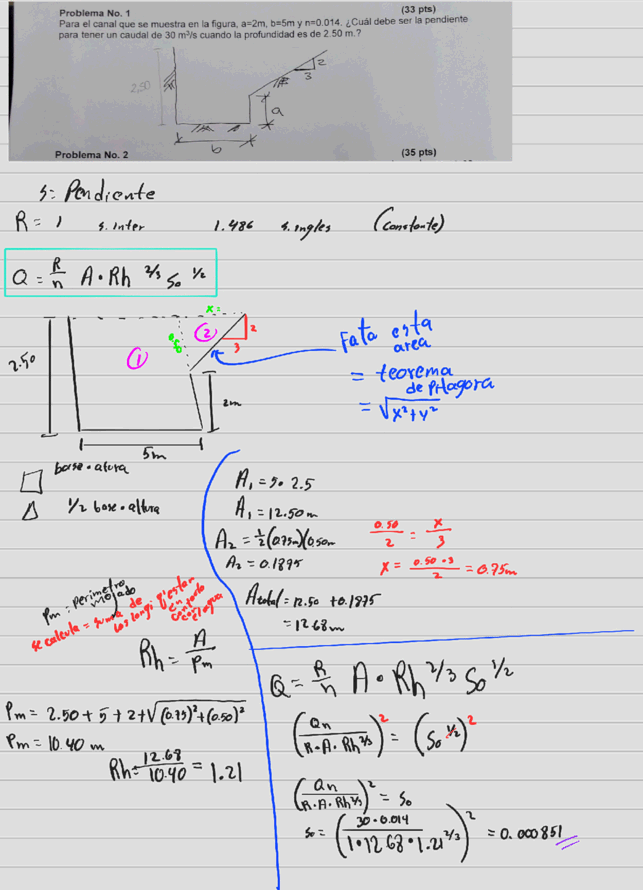 Problema No. 1 (33 pts)
Para el canal que se muestra en la figura, a=2m, b=5m y n=0.014. ¿Cuál debe ser la pendiente
para tener un caudal de 30 m³/s cuando la profundidad es de 2.50 m.?
2.50
2
3
a
b
Problema No. 2 (35 pts)
S= Pendiente
R = 1 s. inter 1.486 s. ingles (Constante)
Q = R/n A • Rh ^2/3 So ^1/2
x=
2
3
①
②
2.50
2m
5m
Fata esta
area
= teorema
de Pitagora
= √x²+y²
base • altura
1/2 base • altura
A₁ = 5 • 2.5
A₁ = 12.50m
A₂ = 1/2 (0.75m)(0.50m
A₂ = 0.1875
0.50/2 = x/3
x = 0.50•3/2 = 0.75m
Atotal = 12.50 + 0.1875
= 12.68m
Pm = perimetro
mojado
se calcula = suma de
los longi
contacto
con agua
Rh = A/Pm
Pm = 2.50 + 5 + 2 + √(0.75)²+(0.50)²
Pm = 10.40 m
Rh = 12.68/10.40 = 1.21
Q = R/n A • Rh ^2/3 So ^1/2
(Qn/R•A•Rh^2/3)² = (So^1/2)²
(Qn/R•A•Rh^2/3)² = So
So = (30•0.014/1•12.68•1.21^2/3)² = 0.000851